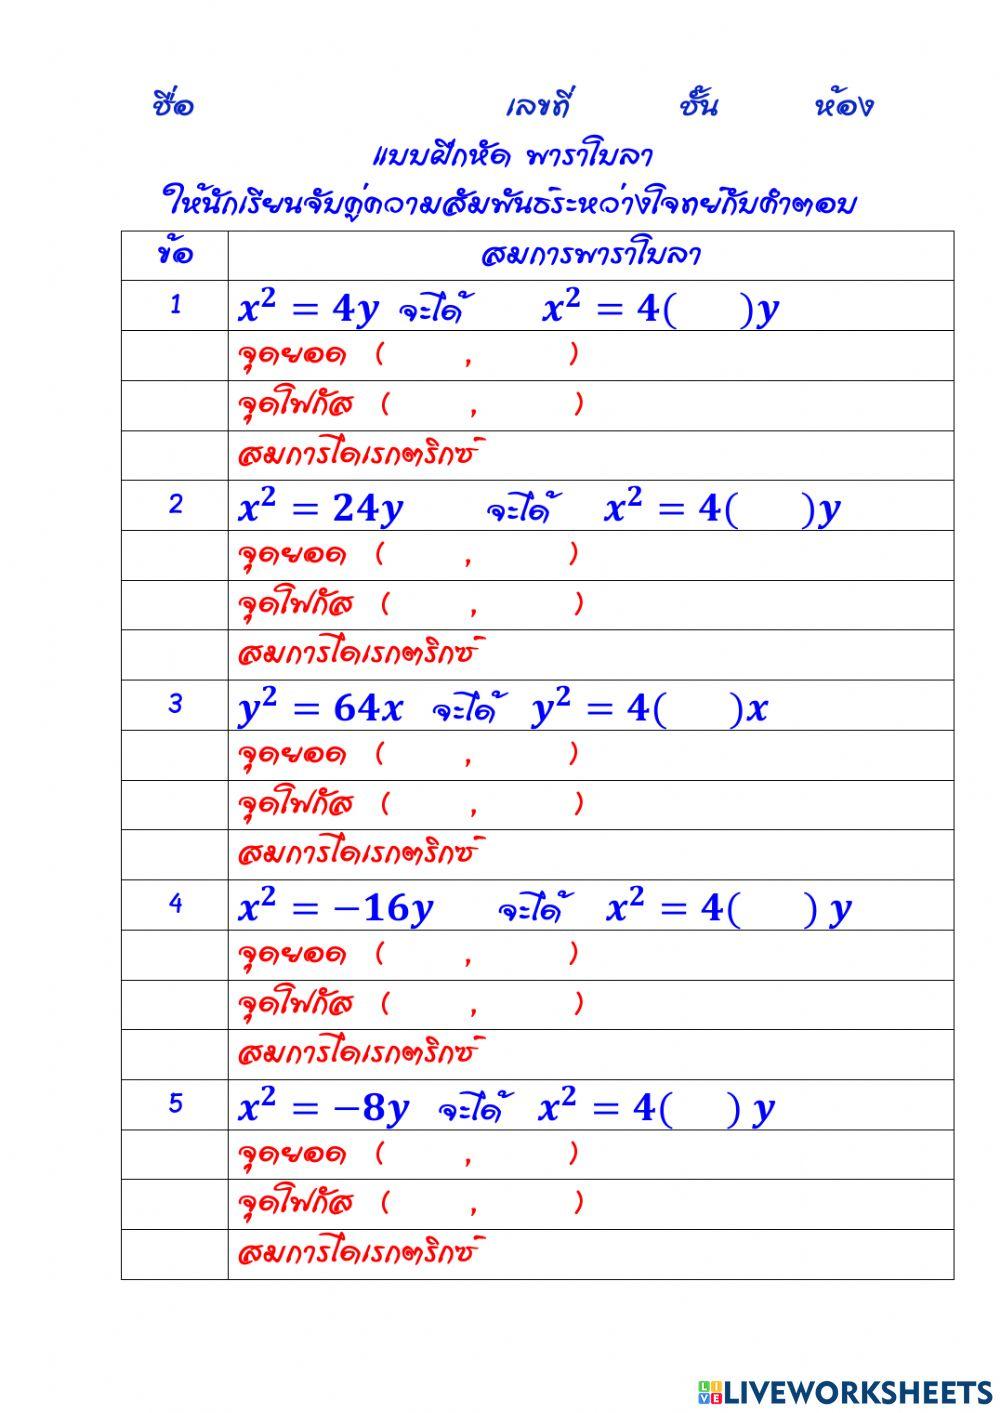 ชื่อ เลขที่ ชั้น ห้อง
แบบฝึกหัด พาราโบลา
ให้นักเรียนจับคู่ความสัมพันธ์ระหว่างโจทย์กับคำตอบ
ข้อ สมการพาราโบลา
1 x² = 4y จะได้ x² = 4( )y
จุดยอด ( , )
จุดโฟกัส ( , )
สมการไดเรกตริกซ์
2 x² = 24y จะได้ x² = 4( )y
จุดยอด ( , )
จุดโฟกัส ( , )
สมการไดเรกตริกซ์
3 y² = 64x จะได้ y² = 4( )x
จุดยอด ( , )
จุดโฟกัส ( , )
สมการไดเรกตริกซ์
4 x² = −16y จะได้ x² = 4( ) y
จุดยอด ( , )
จุดโฟกัส ( , )
สมการไดเรกตริกซ์
5 x² = −8y จะได้ x² = 4( ) y
จุดยอด ( , )
จุดโฟกัส ( , )
สมการไดเรกตริกซ์
LIVE LIVEWORKSHEETS